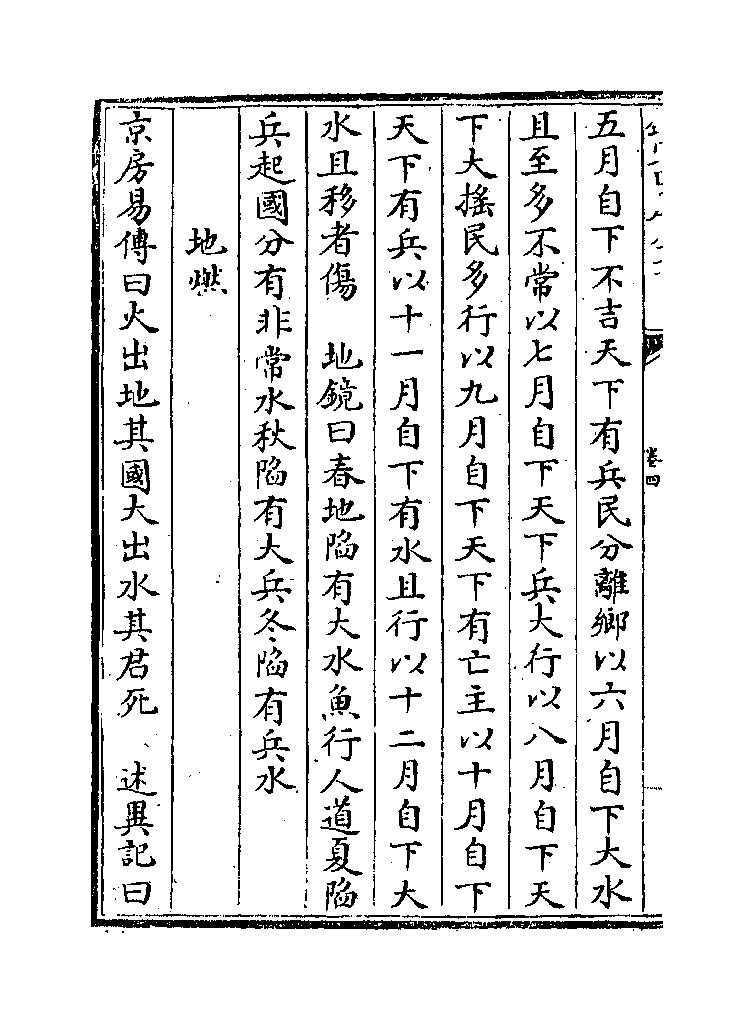 五月自下不吉天下有兵民分離鄉以六月自下大水
且至多不常以七月自下天下兵大行以八月自下天
下大搖民多行以九月自下天下有亡主以十月自下
天下有兵以十一月自下有水且行以十二月自下大
水且移者傷　地鏡曰春地陷有大水魚行人道夏陷
兵起國分有非常水秋陷有大兵冬陷有兵水
地燃
京房易傳曰火出地其國大出水其君死　述異記曰
卷四